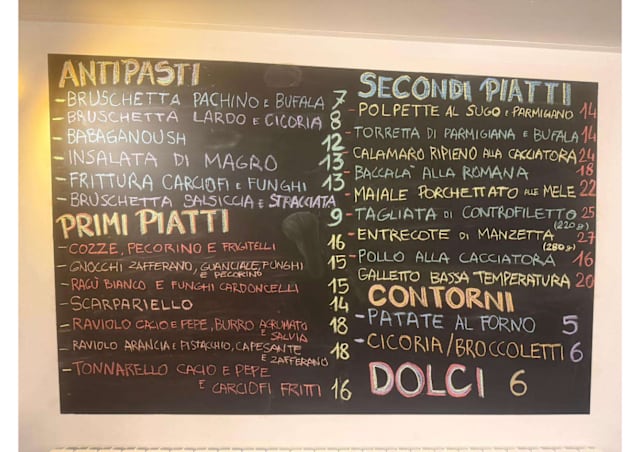 ANTIPASTI
- BRUSCHETTA PACHINO E BUFALA 7
- BRUSCHETTA LARDO E CICORIA 8
- BABAGANOUSH 12
- INSALATA DI MAGRO 13
- FRITTURA CARCIOFI E FUNGHI 13
- BRUSCHETTA SALSICCIA E STRACCIATA 9
PRIMI PIATTI
- COZZE, PECORINO E FRIGITELLI 16
- GNOCCHI ZAFFERANO, GUANCIALE, FUNGHI 15
E PECORINO
- RAGÙ BIANCO E FUNGHI CARDONCELLI 15
- SCARPARIELLO 14
- RAVIOLO CACIO E PEPE, BURRO AGRUMATO 18
E SALVIA
- RAVIOLO ARANCIA E PISTACCHIO, CAPESANTE 18
E ZAFFERANO
- TONNARELLO CACIO E PEPE
E CARCIOFI FRITTI 16
SECONDI PIATTI
- POLPETTE AL SUGO E PARMIGIANO 14
- TORRETTA DI PARMIGIANA E BUFALA 14
CALAMARO RIPIENO ALLA CACCIATORA 24
- BACCALA' ALLA ROMANA 18
- MAIALE PORCHETTATO ALLE MELE 22
- TAGLIATA DI CONTROFILETTO 25
(220 gr)
- ENTRECOTE DI MANZETTA 27
(280 gr)
- POLLO ALLA CACCIATORA 16
GALLETTO BASSA TEMPERATURA 20
CONTORNI
- PATATE AL FORNO 5
- CICORIA/BROCCOLETTI 6
DOLCI 6